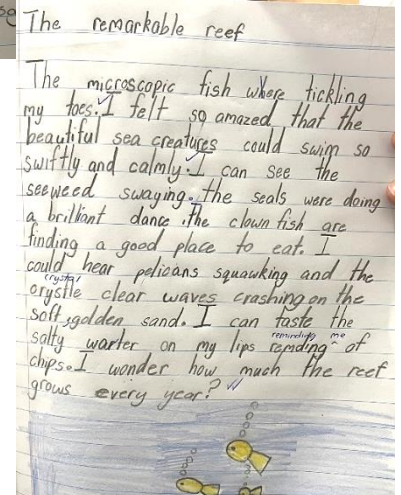 The remarkable reef
The microscopic fish where tickling
my toes. I felt so amazed that the
beautiful sea creatures could swim so
swiftly and calmly. I can see the
seeweed swaying. the seals were doing
a brilliant dance. the clown fish are
finding a good place to eat. I
could hear pelicans squawking and the
crystal
crystle clear waves crashing on the
soft, golden sand. I can taste the
reminding me
salty warter on my lips remding ^ of
chips. I wonder how much the reef
grows every year?